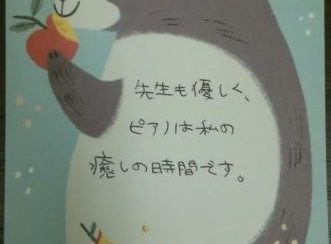 先生も優しく、
ピアノは私の
癒しの時間です。